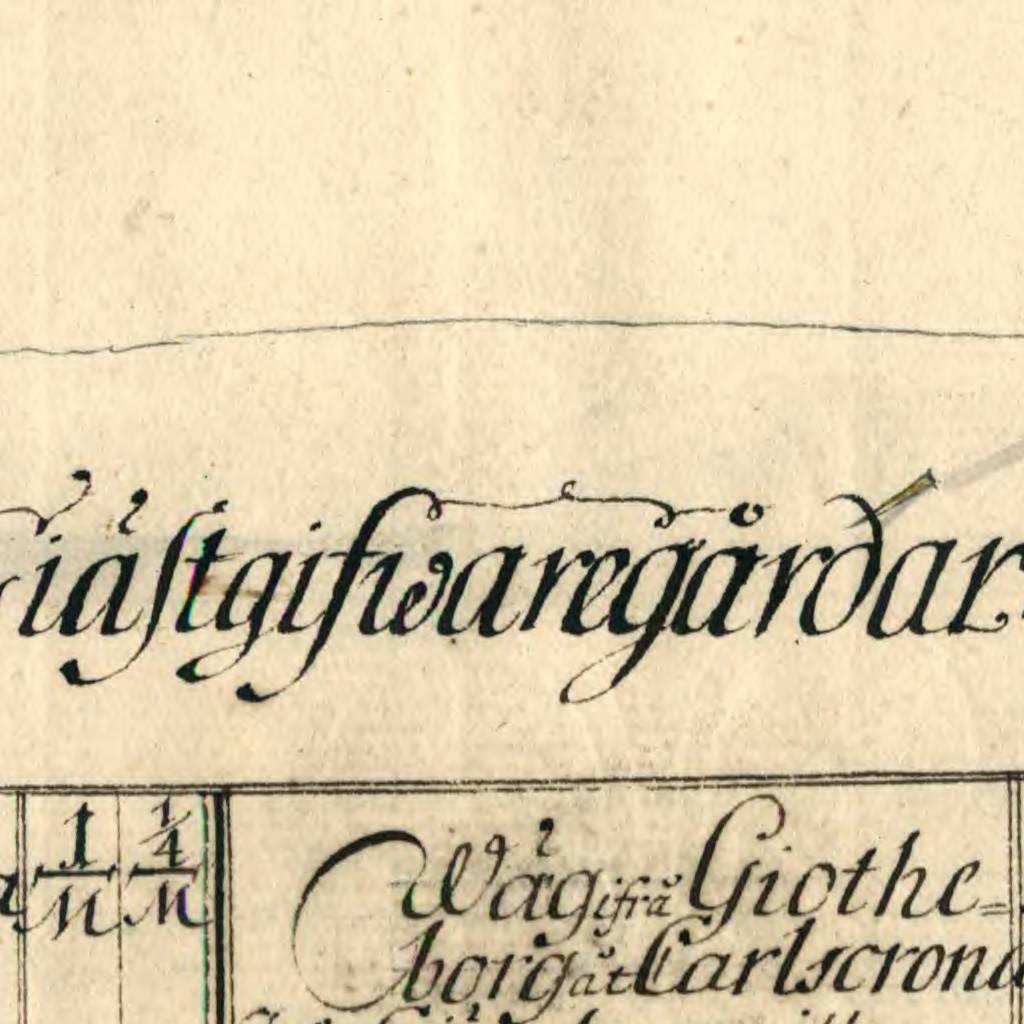 Giästgifwaregårdar.
1/M 1/4/M
Wäg ifrå Giothe=
borg åt Carlscrona